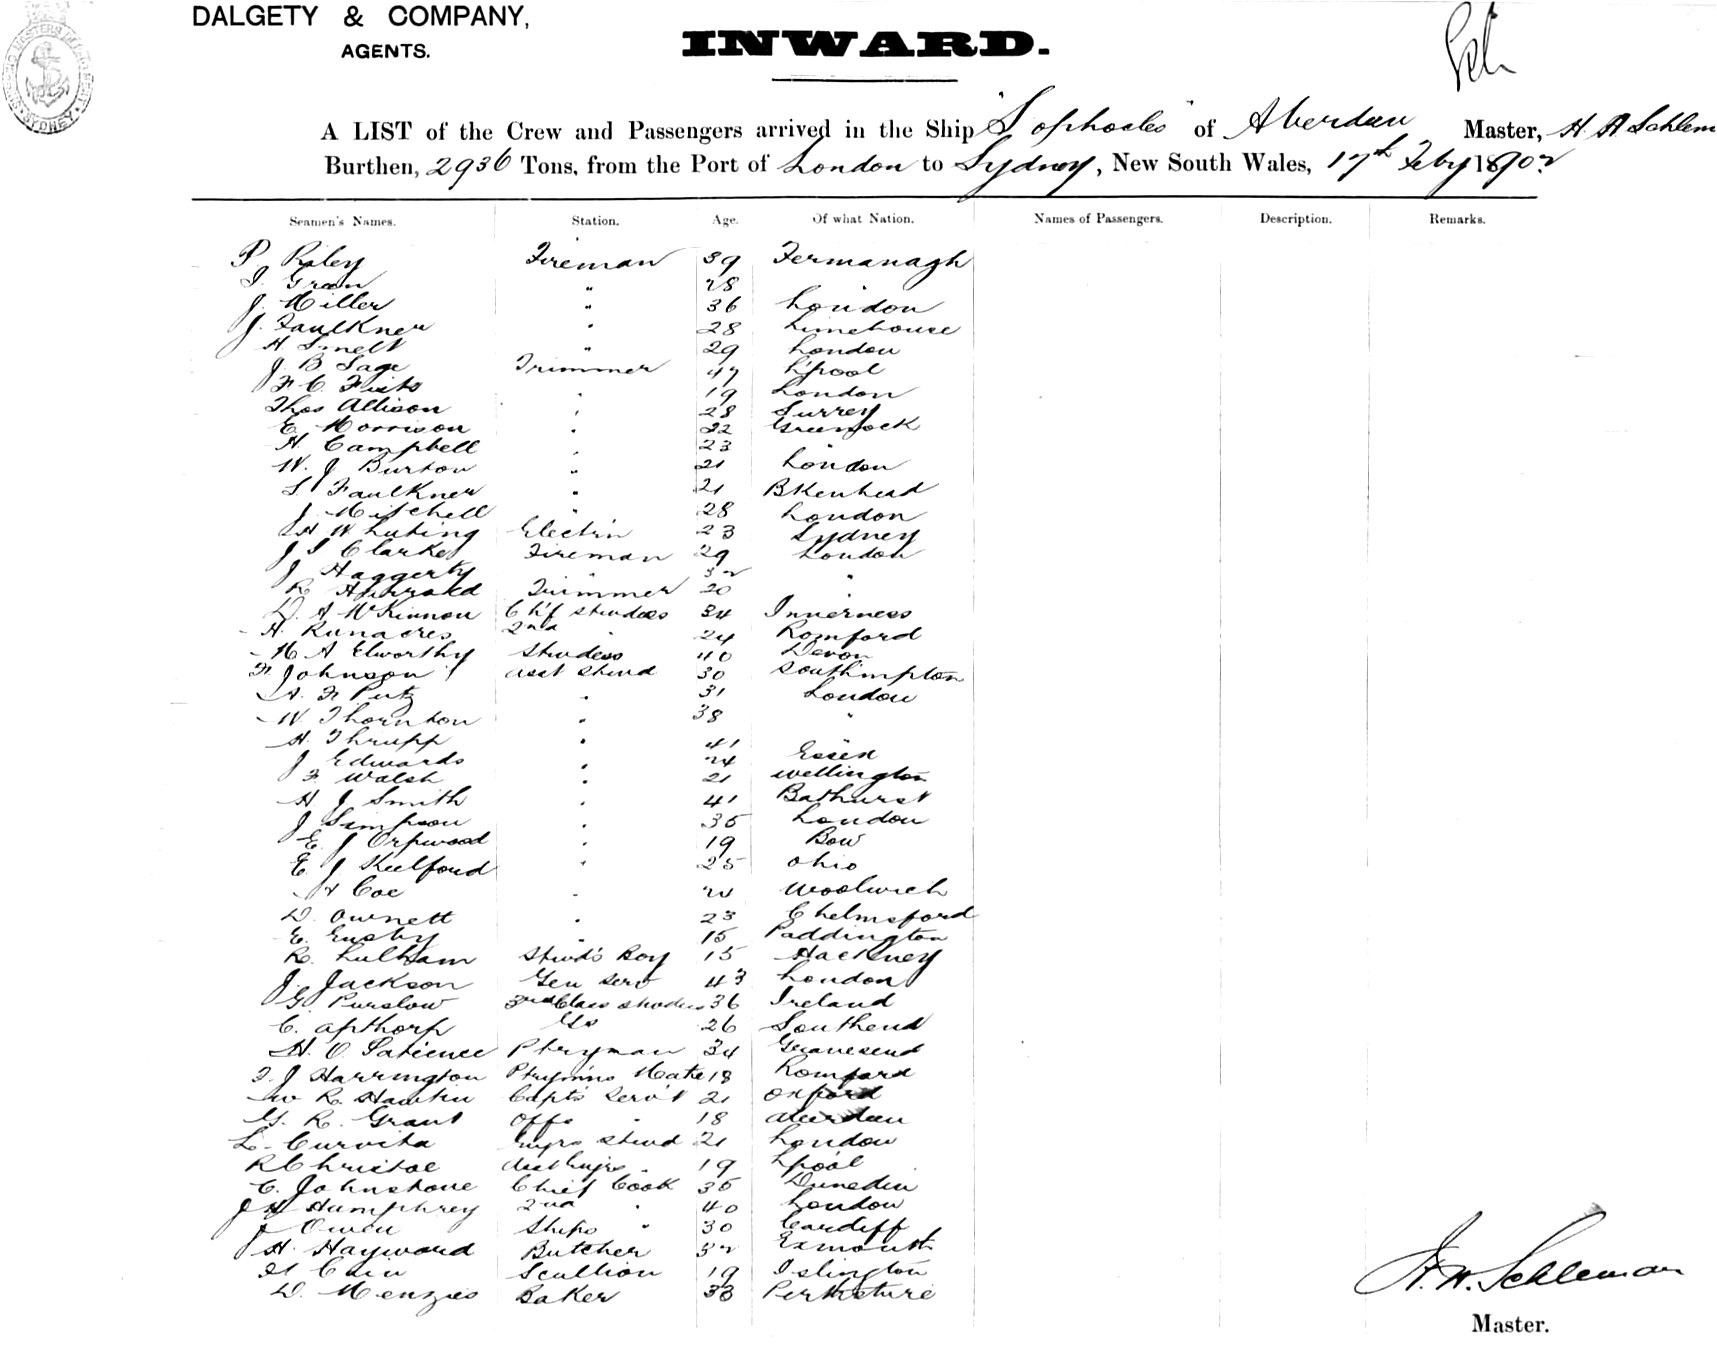 DALGETY & COMPANY,
AGENTS.
INWARD.
A LIST of the Crew and Passengers arrived in the Ship "Sophocles" of Aberdeen Master, H. A Schlem
Burthen, 2936 Tons, from the Port of London to Sydney, New South Wales, 17th Feby 1902
Seamen's Names. Station. Age. Of what Nation. Names of Passengers. Description. Remarks.
P Riley Fireman 39 Fermanagh
Green " 28
J. Miller " 36 London
J. Faulkner " 28 Limehouse
H Smelt " 29 London
J. B Sage Trimmer 47 L'pool
F. C. 19 London
Thos Allison " 28 Surrey
E Morrison " 22 Greenock
H Campbell " 23
W. J Burton " 21 London
S Faulkner " 21 B'Kenhead
J. Mitchell " 28 London
H W Luting Electn 23 Sydney
J J Clarke Fireman 29 London
J Haggerty " 32 "
R Trimmer 20 "
D. A McKinnon Chf Stwdess 34 Inverness
H. Runacres 2nd 24 Romford
M A Elworthy Stwdess 40 Devon
F Johnson asst Stwd 30 Southmpton
A. F Putz " 31 London
W Thornton " 38 "
H. Thrupp " 41
J Edwards " 24 Essex
F Walsh " 21 Wellington
H J Smith " 41 Bathurst
J Simpson " 35 London
E. J Orpwood " 19 Bow
E J Skelford " 25 Ohio
H Coe " Woolwich
D. Ownett " 23 Chelmsford
E. " 15 Paddington
R. Lulham Stwd's Boy 15 Hackney
J. Jackson Gen Serv 43 London
G. Purslow 3rd Class Stwdess 36 Ireland
C. Apthorp Do 26 Southend
H. O. Patience Ptryman 34 Gravesend
J Harrington Ptrymns Mate 18 Romford
W R Hawkin Capts Servt 21 Oxford
G. R. Grant Offs " 18 Aberdeen
L. Curvita Stwd 21 London
R Christoe 19 L'pool
C. Johnstone Chief Cook 35 Dunedin
J H Humphrey 2nd " 40 London
J Owen Ships " 30 Cardiff
H. Hayward Butcher 32 Exmouth
H Cain Scullion 19 Islington
D. Menzies Baker 33 Perthshire
H. W. Schleman
Master.